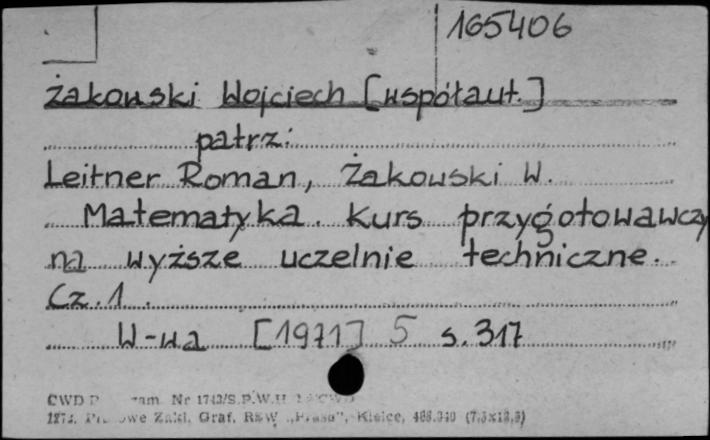 165406
Żakowski Wojciech [współaut.]
patrz:
Leitner Roman, Żakowski W.
Matematyka. Kurs przygotowawczy
na wyższe uczelnie techniczne.
Cz. 1.
W-wa [1971] 5 s. 317
CWD Nr 1743/S.P.W.H
Zakł. Graf. RSW „Prasa", Kielce, (7,5x12,5)